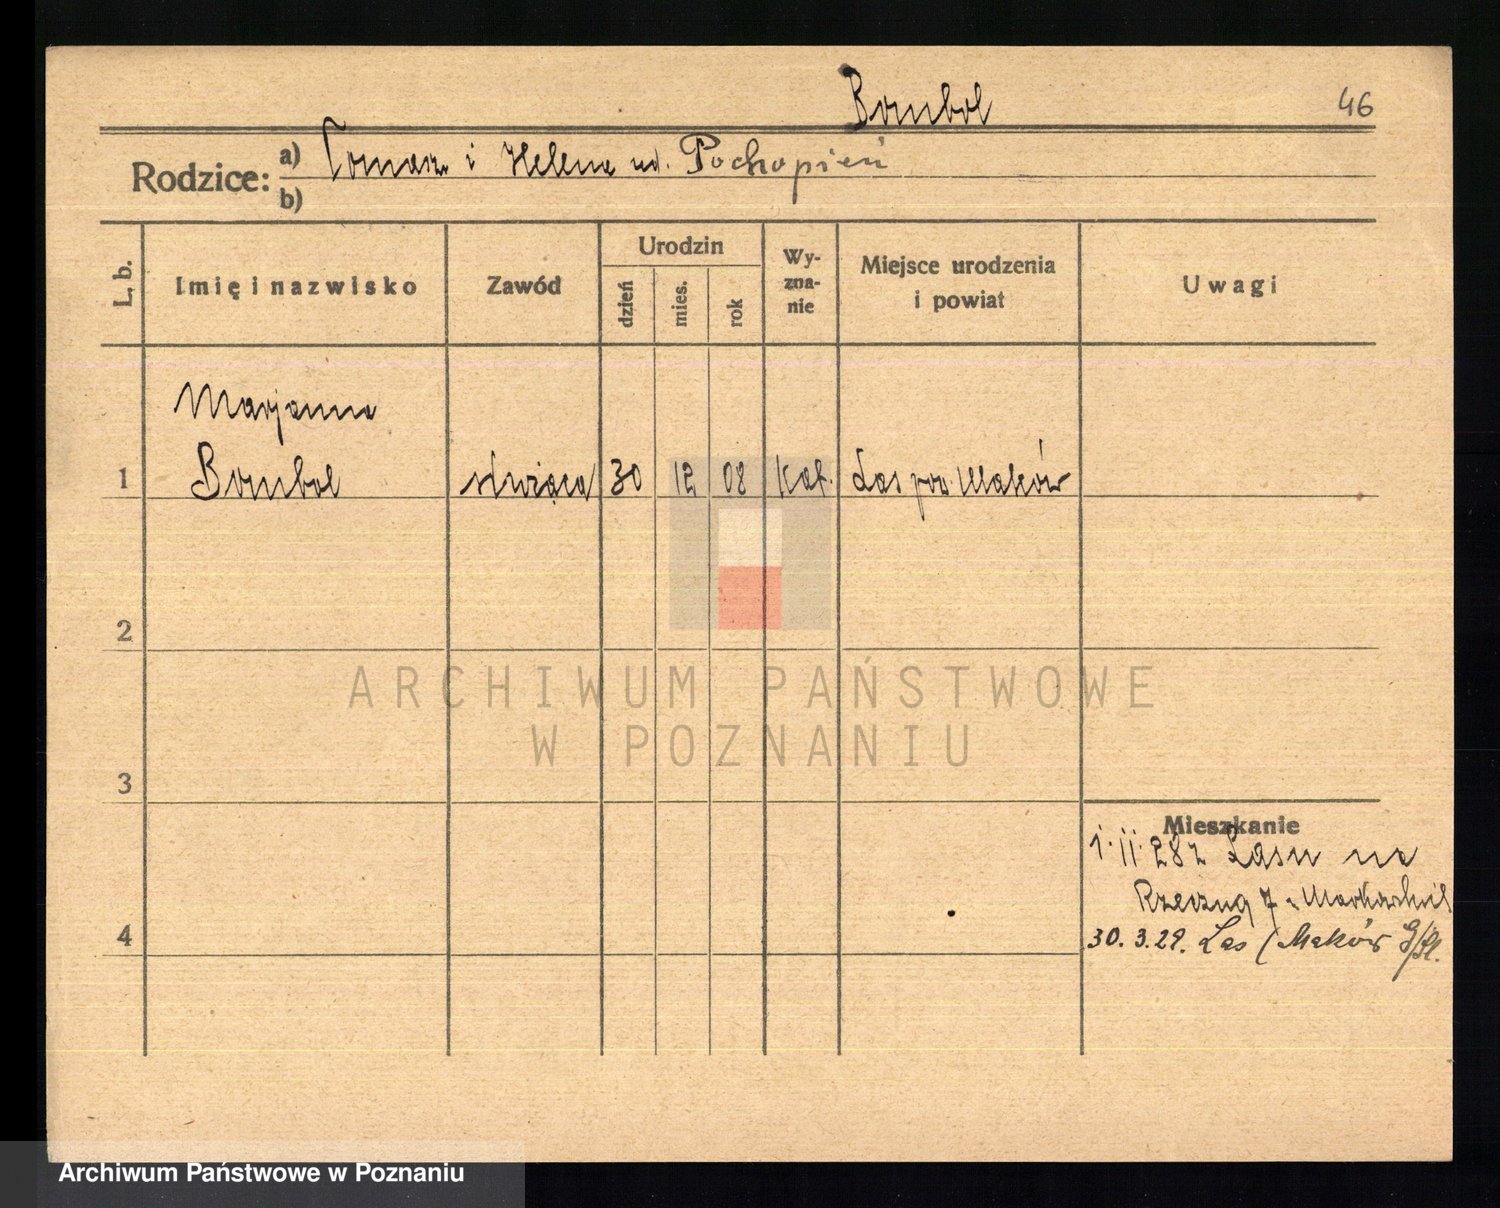 Bombol
46
Rodzice: a) Tomasz i Helena ur. Pochopień
b)
L. b.
Imię i nazwisko
Zawód
Urodzin
dzień
mies.
rok
Wy-
zna-
nie
Miejsce urodzenia
i powiat
Uwagi
Marjanna
1 Bombol służąca 30 12 08 Kat. Las pow. Maków
2
ARCHIWUM PAŃSTWOWE
W POZNANIU
3
Mieszkanie
1.11.28 z Lasu na
Rzeczna 7
4
30.3.29. Las / Maków
Archiwum Państwowe w Poznaniu